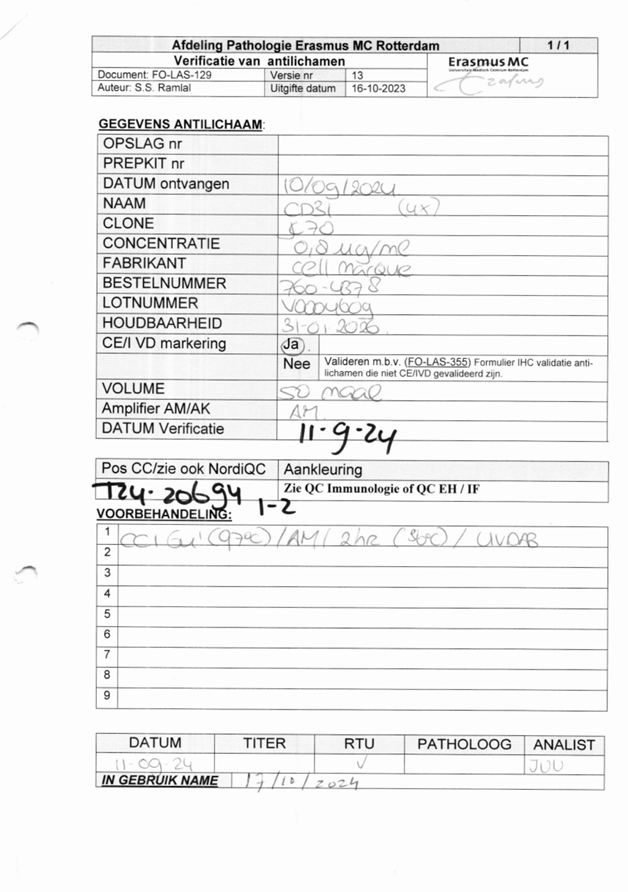 Afdeling Pathologie Erasmus MC Rotterdam 1 / 1
Verificatie van antilichamen
Erasmus MC
Universitair Medisch Centrum Rotterdam
Erasmus
Document: FO-LAS-129 Versie nr 13
Auteur: S.S. Ramlal Uitgifte datum 16-10-2023
GEGEVENS ANTILICHAAM:
OPSLAG nr
PREPKIT nr
DATUM ontvangen 10/09/2024
NAAM CD31 (4x)
CLONE JC70
CONCENTRATIE 0,8 ug/ml
FABRIKANT cell marque
BESTELNUMMER 760-4378
LOTNUMMER V0004609
HOUDBAARHEID 31-01 2026
CE/I VD markering Ja
Nee Valideren m.b.v. (FO-LAS-355) Formulier IHC validatie anti-
lichamen die niet CE/IVD gevalideerd zijn.
VOLUME 50 maal
Amplifier AM/AK AM
DATUM Verificatie 11-9-24
Pos CC/zie ook NordiQC Aankleuring
T24-20694 1-2 Zie QC Immunologie of QC EH / IF
VOORBEHANDELING:
1 CC1 (97°C) / AM / 2hr (36°C) / UVDAB
2
3
4
5
6
7
8
9
DATUM TITER RTU PATHOLOOG ANALIST
11-09-24 √ JUU
IN GEBRUIK NAME 17/10/2024